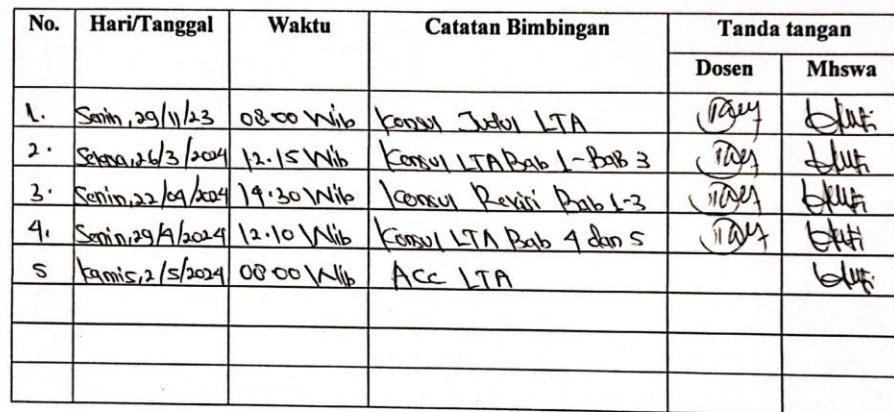 No. Hari/Tanggal Waktu Catatan Bimbingan Tanda tangan
Dosen Mhswa
1. Senin, 29/11/23 08.00 Wib Konsul Judul LTA
2. Selasa, 26/3/2024 12.15 Wib Konsul LTA Bab 1-Bab 3
3. Senin, 22/04/2024 14.30 Wib Konsul Revisi Bab 1-3
4. Senin, 29/4/2024 12.10 Wib Konsul LTA Bab 4 dan 5
5 Kamis, 2/5/2024 08.00 Wib ACC LTA